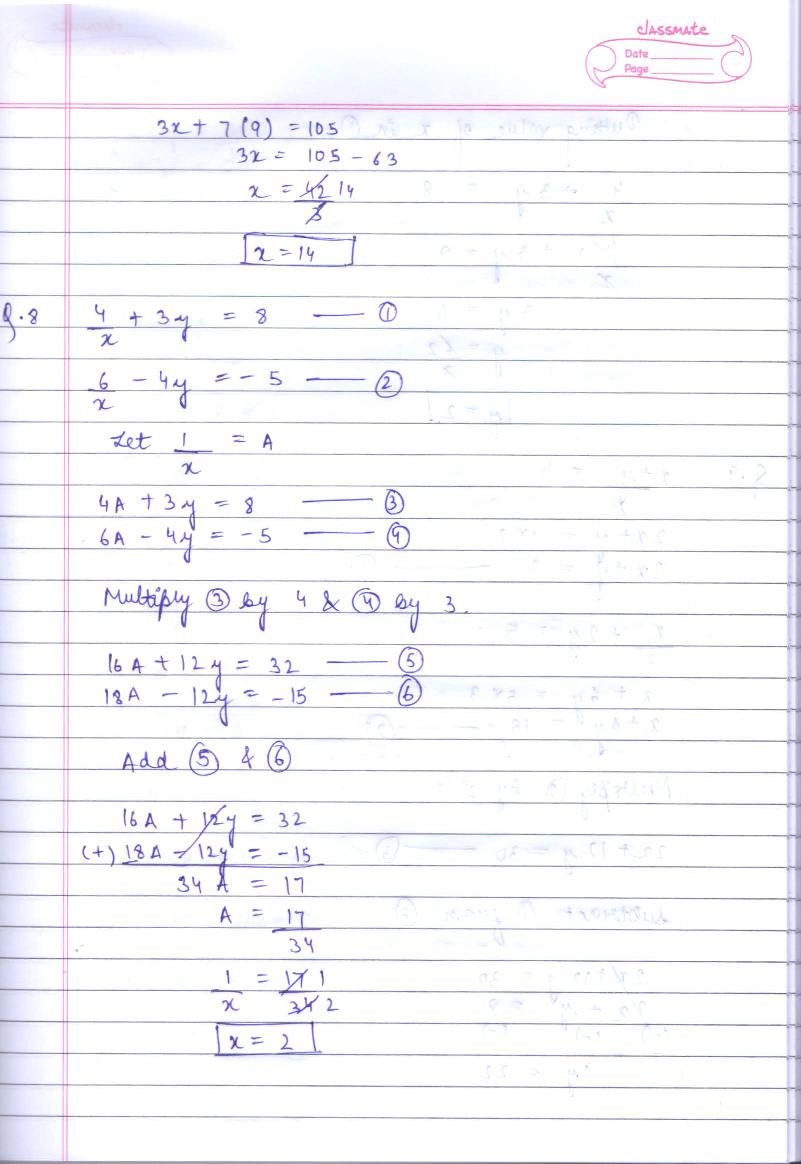 classmate
Date
Page
3x + 7(9) = 105
3x = 105 - 63
x = 42 14
3
x = 14
Q.8 4/x + 3y = 8 —— ①
6/x - 4y = -5 —— ②
Let 1/x = A
4A + 3y = 8 —— ③
6A - 4y = -5 —— ④
Multiply ③ by 4 & ④ by 3.
16A + 12y = 32 —— ⑤
18A - 12y = -15 —— ⑥
Add ⑤ & ⑥
16A + 12y = 32
(+) 18A - 12y = -15
34 A = 17
A = 17
34
1/x = 17 1
34 2
x = 2